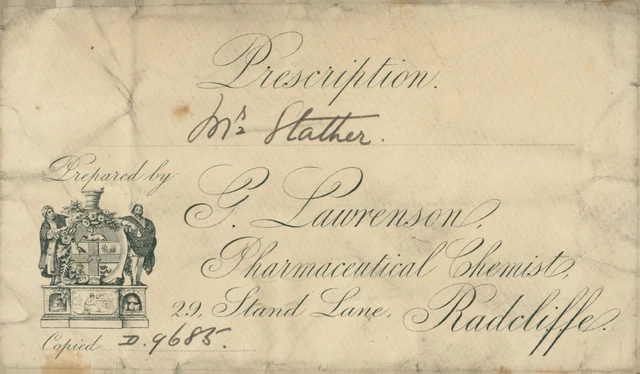 Prescription.
Mrs Stather.
Prepared by
G. Lawrenson,
Pharmaceutical Chemist,
29, Stand Lane, Radcliffe.
Copied D.9685.